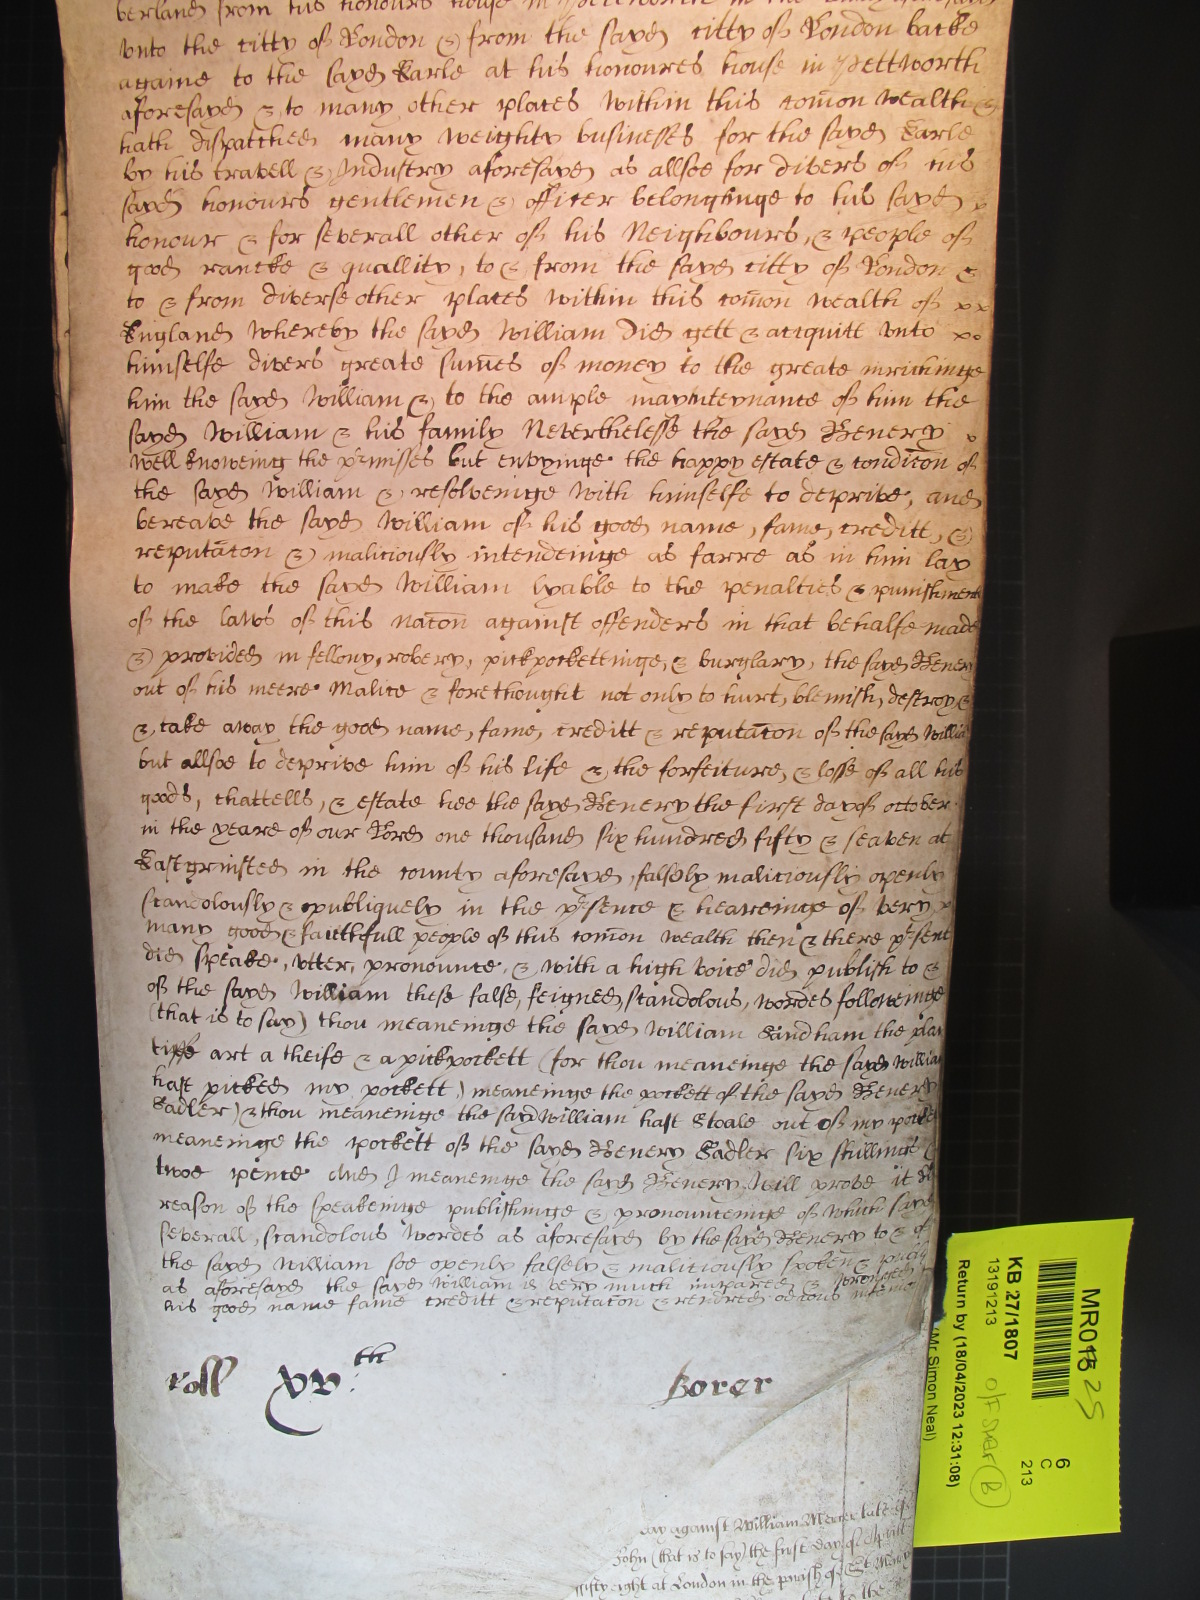 berland from his honours house in Pettworth in the
vnto the citty of London & from the sayd citty of London backe
againe to the sayd Earle at his honoures house in Pettworth
aforesayd & to many other places within this com̄on wealth &
hath dispatched many weighty businesses for the sayd Earle
by his travell & Industry aforesayd as allsoe for divers of his
sayd honours gentlemen & officer belonginge to his sayd
honour & for severall other of his Neighbours, & people of
good rancke & quallity, to & from the sayd citty of London &
to & from diverse other places within this com̄on wealth of
England whereby the sayd William did gett & acquitt vnto
himselfe divers greate sum̄es of money to the greate inrichinge
him the sayd William & to the ample mayntenance of him the
sayd William & his family Neverthelesse the sayd Henery
well knoweing the pr̄misses but envyinge the happy estate & condic̄on of
the sayd William & resolveinge with himselfe to deprive, and
bereave the sayd William of his good name, fame, creditt, &
reputac̄on & maliciously intendeinge as farre as in him lay
to make the sayd William lyable to the penalties & punishment
of the laws of this nac̄on against offenders in that behalfe made
& provided in fellony, robery, pickpockettinge, & burglary, the sayd Henery
out of his meere Malice & forethought not only to hurt, blemish, destroy, &
& take away the good name, fame, creditt & reputac̄on of the sayd Willia
but allsoe to deprive him of his life & the forfeiture, & losse of all his
goods, chattells, & estate hee the sayd Henery the first day of october
in the yeare of our Lord one thousand six hundred fifty & seaven at
Eastgrinsted in the county aforesayd, falsely maliciously openly
scandolously & publiquely in the pr̄sence & heareinge of very
many good & faithfull people of this com̄on wealth then & there pr̄sent
did speake, vtter, pronounce, & with a high voice did publish to &
of the sayd William these false, feigned, scandolous, wordes followeinge
(that is to say) thou meaneinge the sayd William Sandham the plan
tiffe art a theife & a pickpockett (for thou meaneinge the sayd William
hast picked my pockett,) meaneinge the pockett of the sayd Henery
Sadler) & thou meaneinge the sayd William hast Stoale out of my pocket
meaneinge the pockett of the sayd Henery Sadler six shillings &
twoe pence And I meaneinge the sayd Henery, Will prove it By
reason of the speakeinge publishinge & pronounceinge of which sayd
severall, scandolous wordes as aforesayd by the sayd Henery to & of
the sayd William soe openly falsely & maliciously spoken &
as aforesayd the sayd William is very much impared &
his good name fame creditt & reputac̄on & rendred odious
Roll xv.th Borer
against William Mercer late of
John (that is to say) the first day of Aprill
fifty eight at London in the parish of St Mary
to the
MR018 25
KB 27/1807
13191213
Return by (18/04/2023 12:31:08)
(Mr Simon Neal)
6
C
213
B